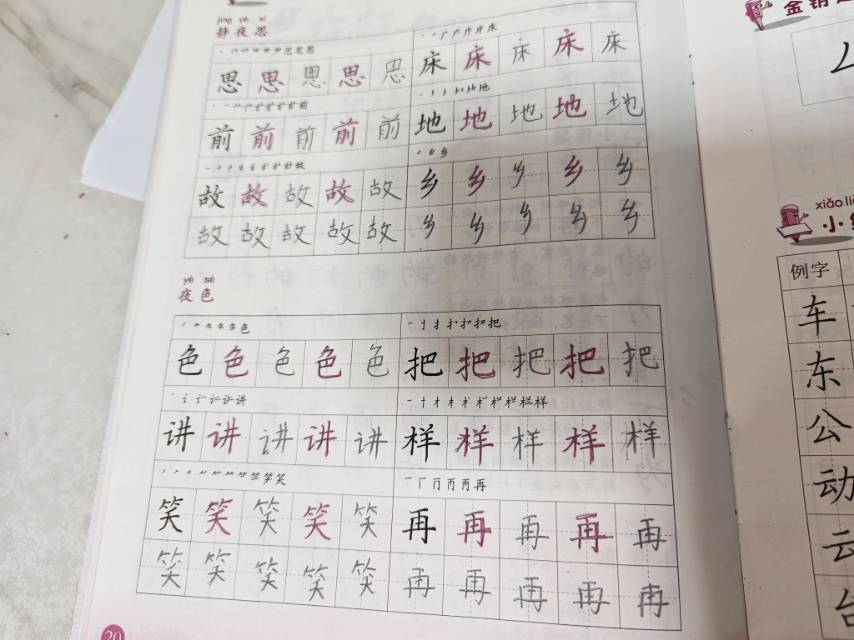 jìng yè sī
静夜思
思思思思思
床床床床床
前前前前前
地地地地地
故故故故故
乡乡乡乡乡
故故故故故
乡乡乡乡乡
yè sè
夜色
色色色色色
把把把把把
讲讲讲讲讲
样样样样样
笑笑笑笑笑
再再再再再
笑笑笑笑笑
再再再再再
20
xiǎo li
小
例字
车
东
公
动
云
台